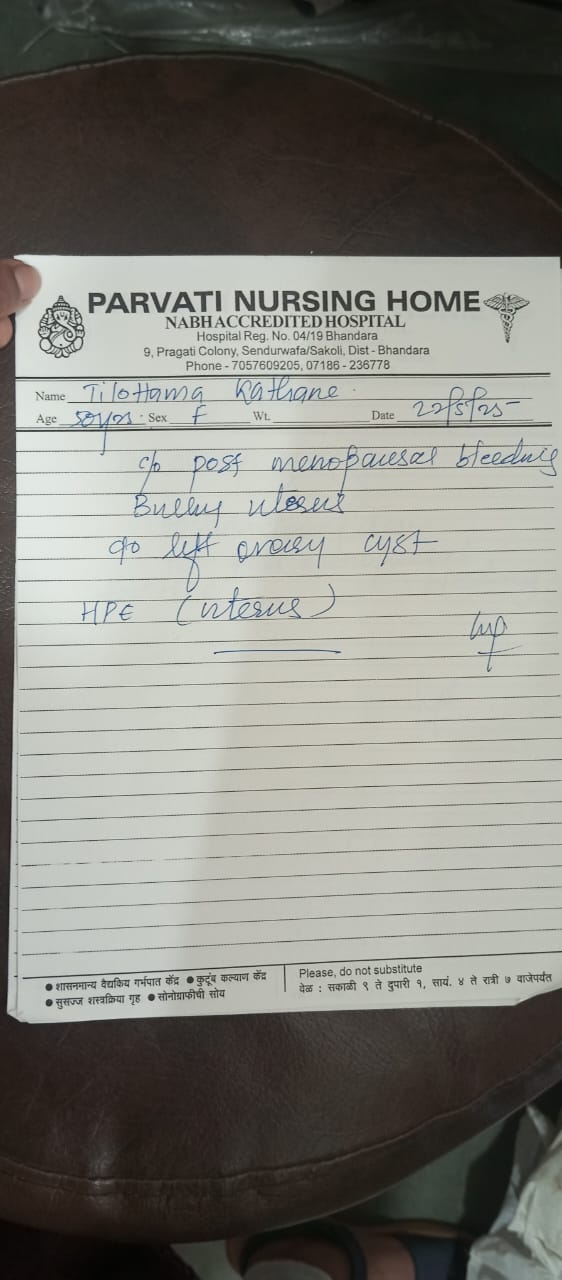 PARVATI NURSING HOME
NABH ACCREDITED HOSPITAL
Hospital Reg. No. 04/19 Bhandara
9, Pragati Colony, Sendurwafa/Sakoli, Dist - Bhandara
Phone - 7057609205, 07186 - 236778
Name Tilottama Kathane
Age 50yrs Sex F Wt. Date 22/5/25
c/o post menopausal bleeding
Bulky uterus
c/o left ovary cyst
HPE (uterus)
● शासनमान्य वैद्यकिय गर्भपात केंद्र ● कुटूंब कल्याण केंद्र
● सुसज्ज शस्त्रक्रिया गृह ● सोनोग्राफीची सोय
Please, do not substitute
वेळ : सकाळी ९ ते दुपारी १, सायं. ४ ते रात्री ७ वाजेपर्यंत